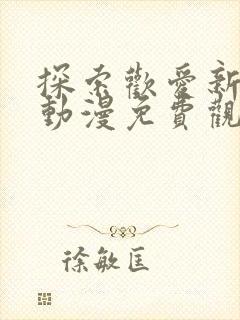 探索歡愛新
動漫免費觀
徐敏匡